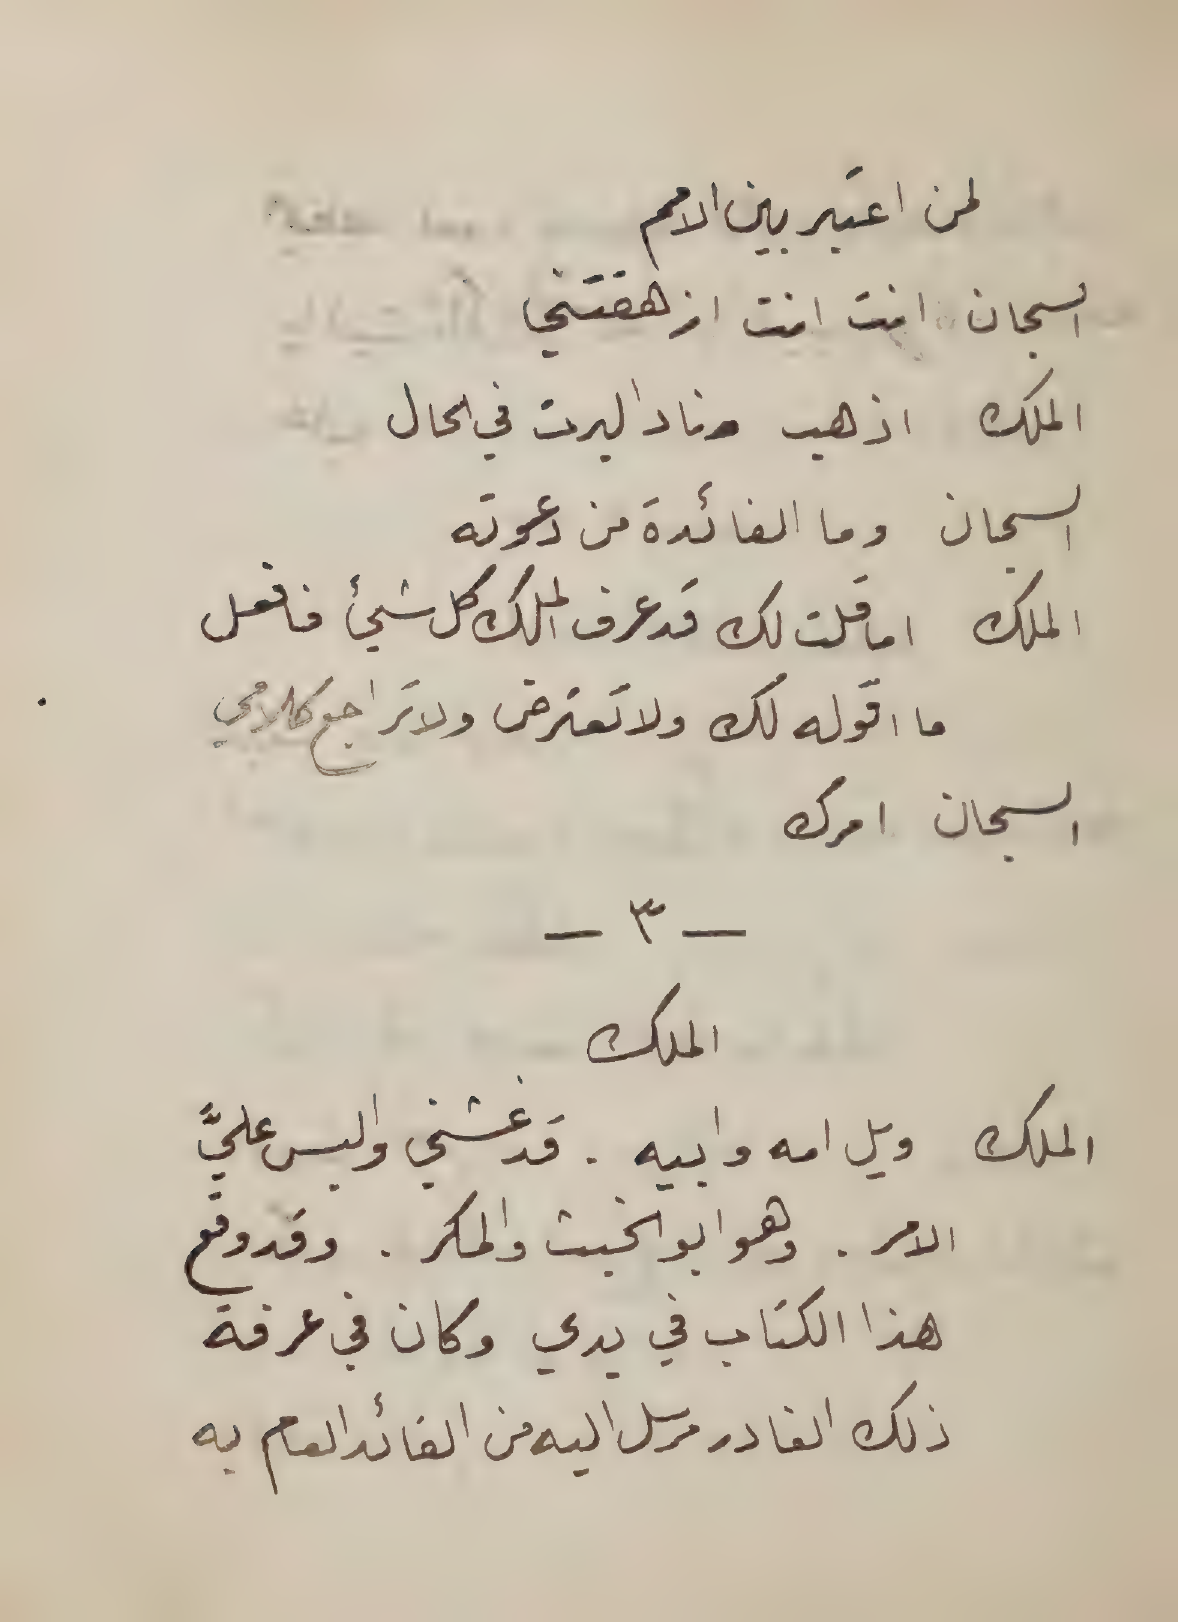 لمن اعتبر بين الامم
السجان انت انت ازهقتني
الملك اذهب وناد البرت في الحال
السجان وما الفائدة من دعوته
الملك اما قلت لك قد عرف الملك كل شيئ فافعل
ما اقوله لك ولا تعترض ولا تراجع كلامي
السجان امرك
— ٣ —
الملك
الملك ويل امه وابيه . قد غشني والبس عليَّ
الامر . وهو ابو الخبث والمكر . وقد وقع
هذا الكتاب في يدي وكان في غرفة
ذلك الغادر مرسل اليه من القائد العام به